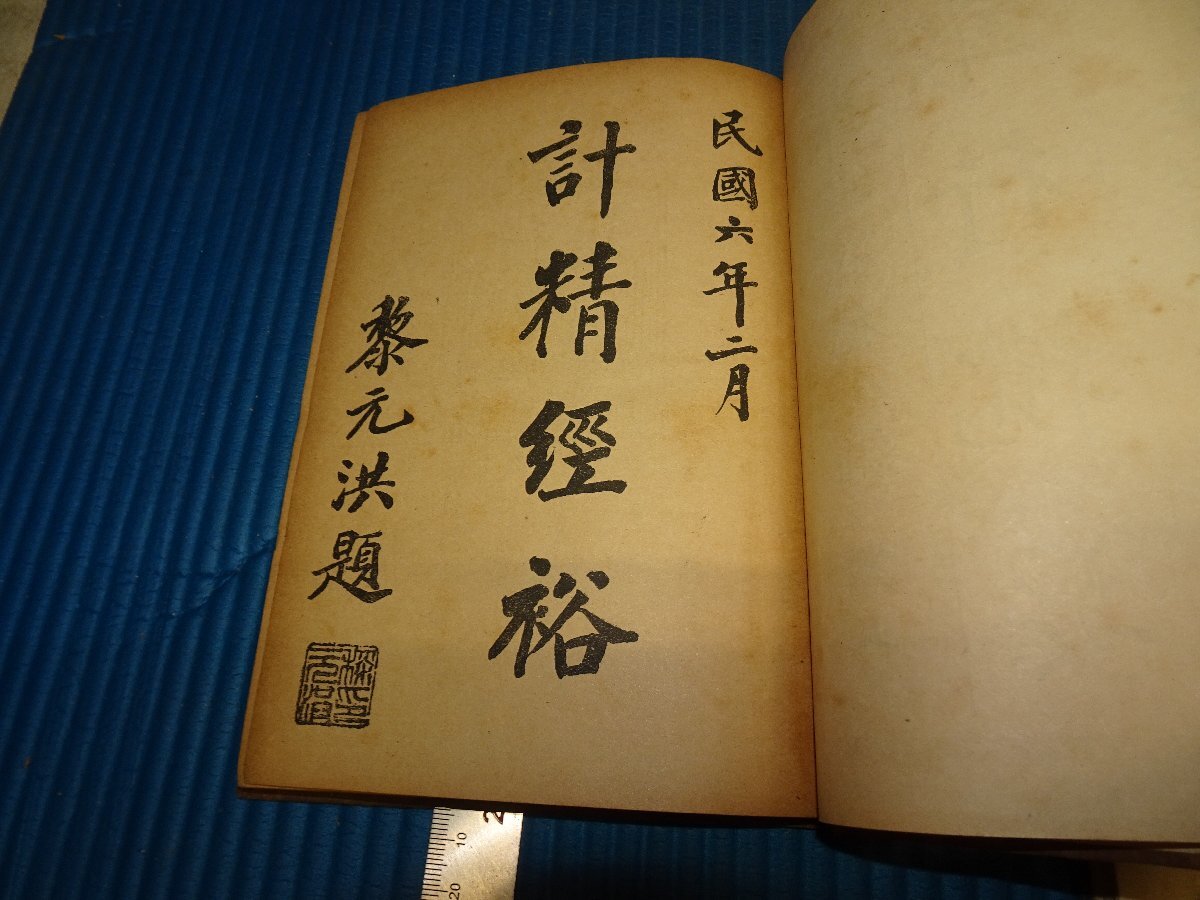 民國六年二月
計精經裕
黎元洪題
10
20
2